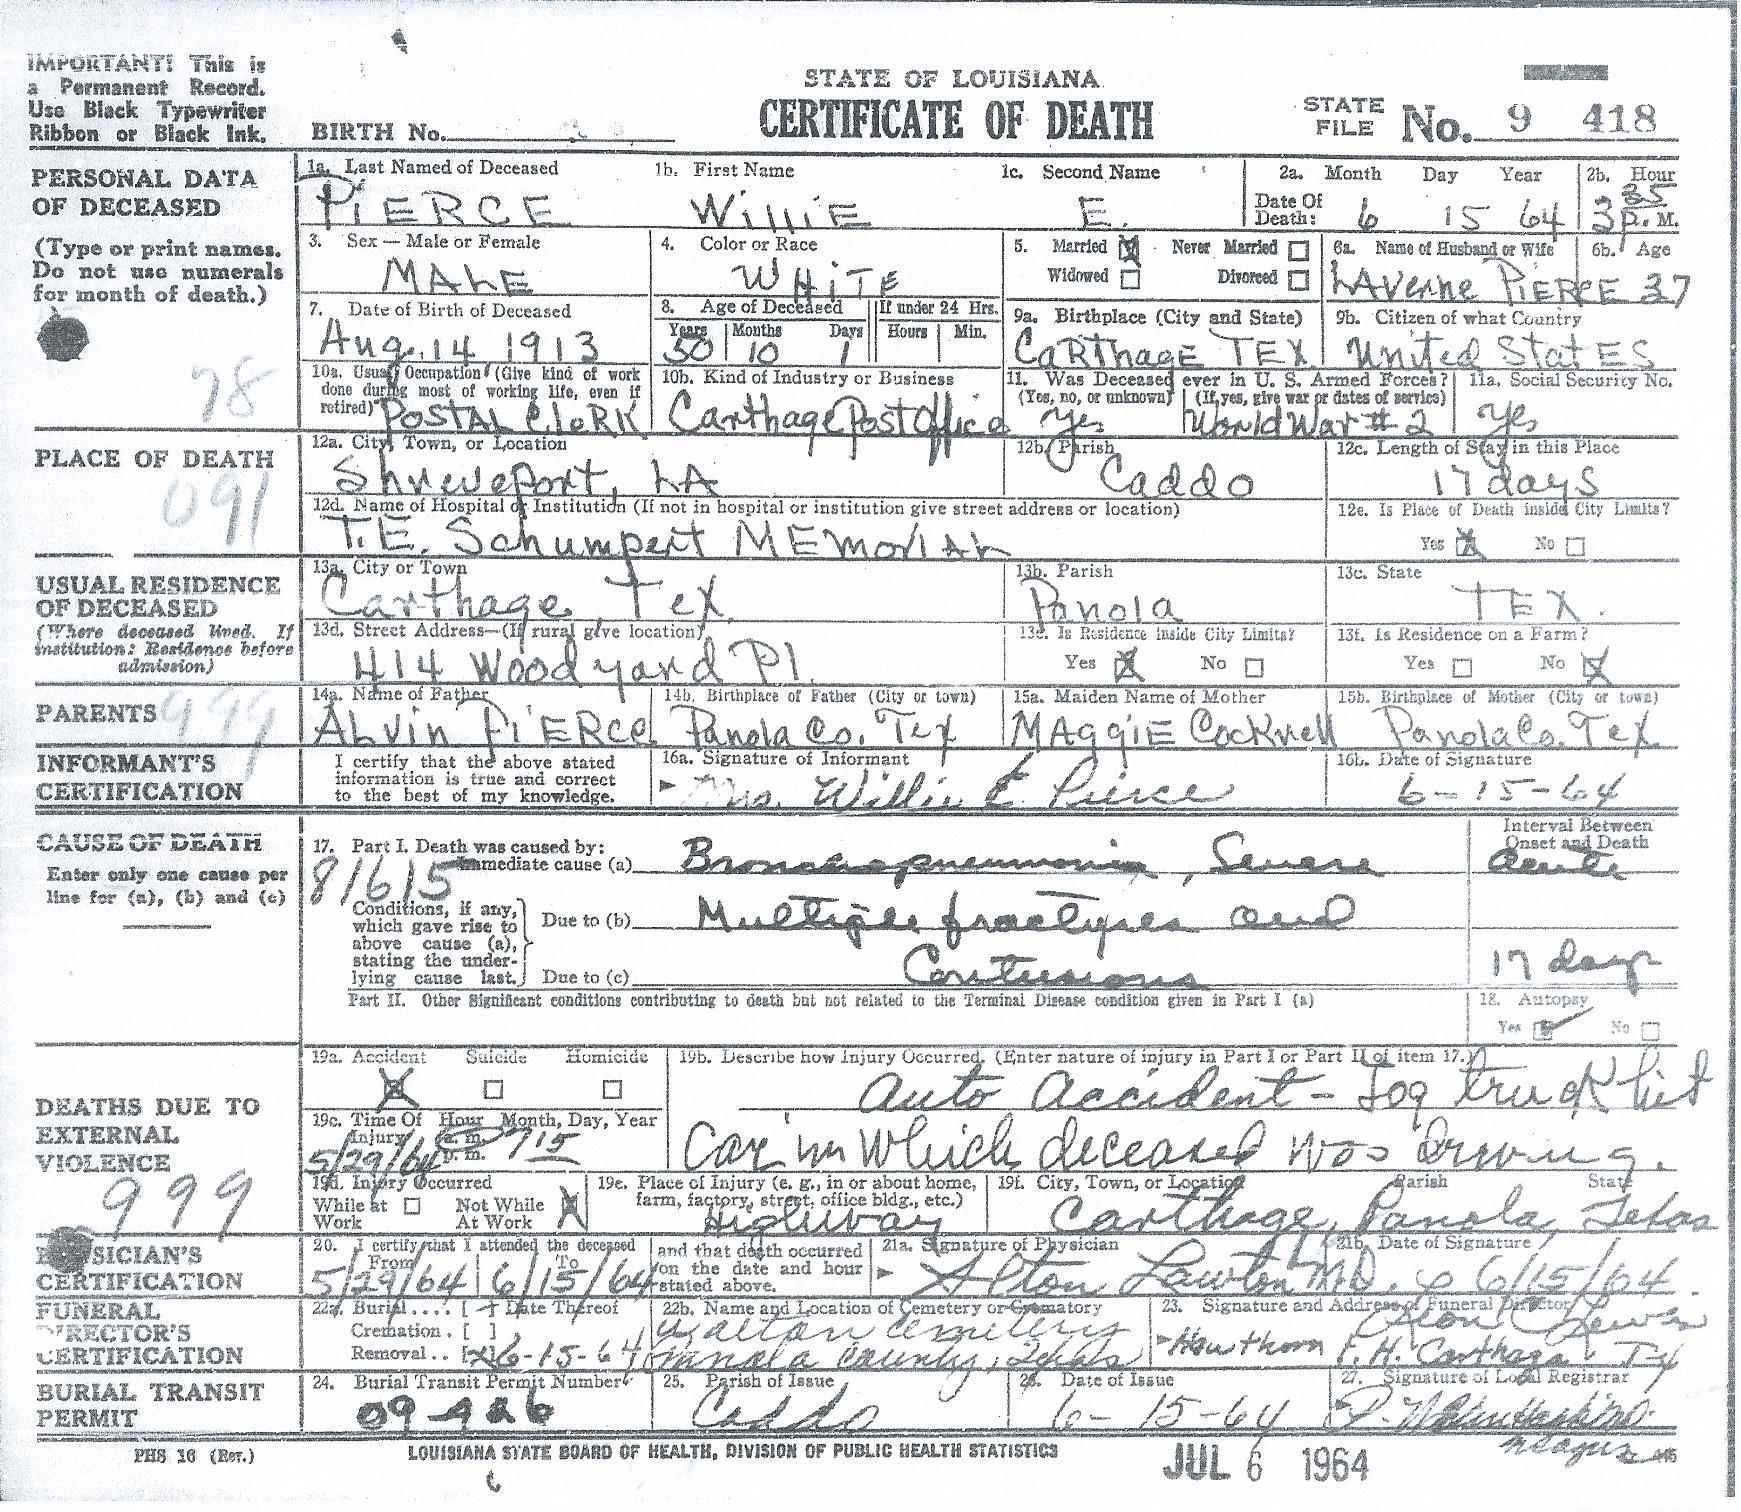 IMPORTANT! This is
a Permanent Record.
Use Black Typewriter
Ribbon or Black Ink.
BIRTH No.
STATE OF LOUISIANA
CERTIFICATE OF DEATH
STATE
FILE No. 9 418
PERSONAL DATA
OF DECEASED
(Type or print names.
Do not use numerals
for month of death.)
1a. Last Named of Deceased
PIERCE
1b. First Name
WilliE
1c. Second Name
E.
2a. Month Day Year
Date Of
Death: 6 15 64
2b. Hour
3 35 P. M.
3. Sex — Male or Female
MALE
4. Color or Race
WHITE
5. Married Never Married
Widowed Divorced
6a. Name of Husband or Wife
LAVerne PIERCE
6b. Age
37
7. Date of Birth of Deceased
Aug. 14 1913
8. Age of Deceased
Years Months Days
50 10 1
If under 24 Hrs.
Hours Min.
9a. Birthplace (City and State)
CaRthagE TEX
9b. Citizen of what Country
United StatES
78
10a. Usual Occupation (Give kind of work
done during most of working life, even if
retired) POSTAL ClerK
10b. Kind of Industry or Business
Carthage Post Office
11. Was Deceased ever in U. S. Armed Forces?
(Yes, no, or unknown) (If yes, give war or dates of service)
Yes World War # 2
11a. Social Security No.
Yes
PLACE OF DEATH
091
12a. City, Town, or Location
Shreveport, LA
12b. Parish
Caddo
12c. Length of Stay in this Place
17 days
12d. Name of Hospital or Institution (If not in hospital or institution give street address or location)
T.E. Schumpert MEmoriAL
12e. Is Place of Death inside City Limits?
Yes No
USUAL RESIDENCE
OF DECEASED
(Where deceased lived. If
institution: Residence before
admission)
13a. City or Town
Carthage, Tex.
13b. Parish
Panola
13c. State
TEX.
13d. Street Address—(If rural give location)
414 Woodyard Pl.
13e. Is Residence inside City Limits?
Yes No
13f. Is Residence on a Farm?
Yes No
PARENTS
999
14a. Name of Father
ALvin PiERCE
14b. Birthplace of Father (City or town)
Panola Co. Tex
15a. Maiden Name of Mother
MAggiE Cockrell
15b. Birthplace of Mother (City or town)
Panola Co. Tex
INFORMANT'S
CERTIFICATION
I certify that the above stated
information is true and correct
to the best of my knowledge.
16a. Signature of Informant
Mrs. Willie E. Pierce
16b. Date of Signature
6-15-64
CAUSE OF DEATH
Enter only one cause per
line for (a), (b) and (c)
17. Part I. Death was caused by:
Immediate cause (a) Bronchopneumonia, Severe
81615
Interval Between
Onset and Death
acute
Conditions, if any,
which gave rise to
above cause (a),
stating the under-
lying cause last.
Due to (b) Multiple fractures and
Due to (c) Contusions
17 days
Part II. Other Significant conditions contributing to death but not related to the Terminal Disease condition given in Part I (a)
18. Autopsy
Yes No
DEATHS DUE TO
EXTERNAL
VIOLENCE
999
19a. Accident Suicide Homicide
19b. Describe how Injury Occurred. (Enter nature of injury in Part I or Part II of item 17.)
Auto Accident - Log truck hit
Car in Which deceased was driving.
19c. Time Of Hour Month, Day, Year
Injury a. m.
p. m.
5/29/64 715
19d. Injury Occurred
While at Work Not While At Work
19e. Place of Injury (e. g., in or about home,
farm, factory, street, office bldg., etc.)
Highway
19f. City, Town, or Location Parish State
Carthage, Panola, Texas
PHYSICIAN'S
CERTIFICATION
20. I certify that I attended the deceased
From To
5/29/64 6/15/64
and that death occurred
on the date and hour
stated above.
21a. Signature of Physician
Alton Lawton M.D.
21b. Date of Signature
6/15/64
FUNERAL
DIRECTOR'S
CERTIFICATION
22a. Burial.... [ ] Date Thereof
Cremation . [ ]
Removal .. [x] 6-15-64
22b. Name and Location of Cemetery or Crematory
Walton Cemetery
Panola County, Texas
23. Signature and Address of Funeral Director
Leon Lewis
Hawthorn F. H. Carthage Tx
BURIAL TRANSIT
PERMIT
24. Burial Transit Permit Number
09-926
25. Parish of Issue
Caddo
26. Date of Issue
6-15-64
27. Signature of Local Registrar
PHS 16 (Rev.)
LOUISIANA STATE BOARD OF HEALTH, DIVISION OF PUBLIC HEALTH STATISTICS
JUL 6 1964